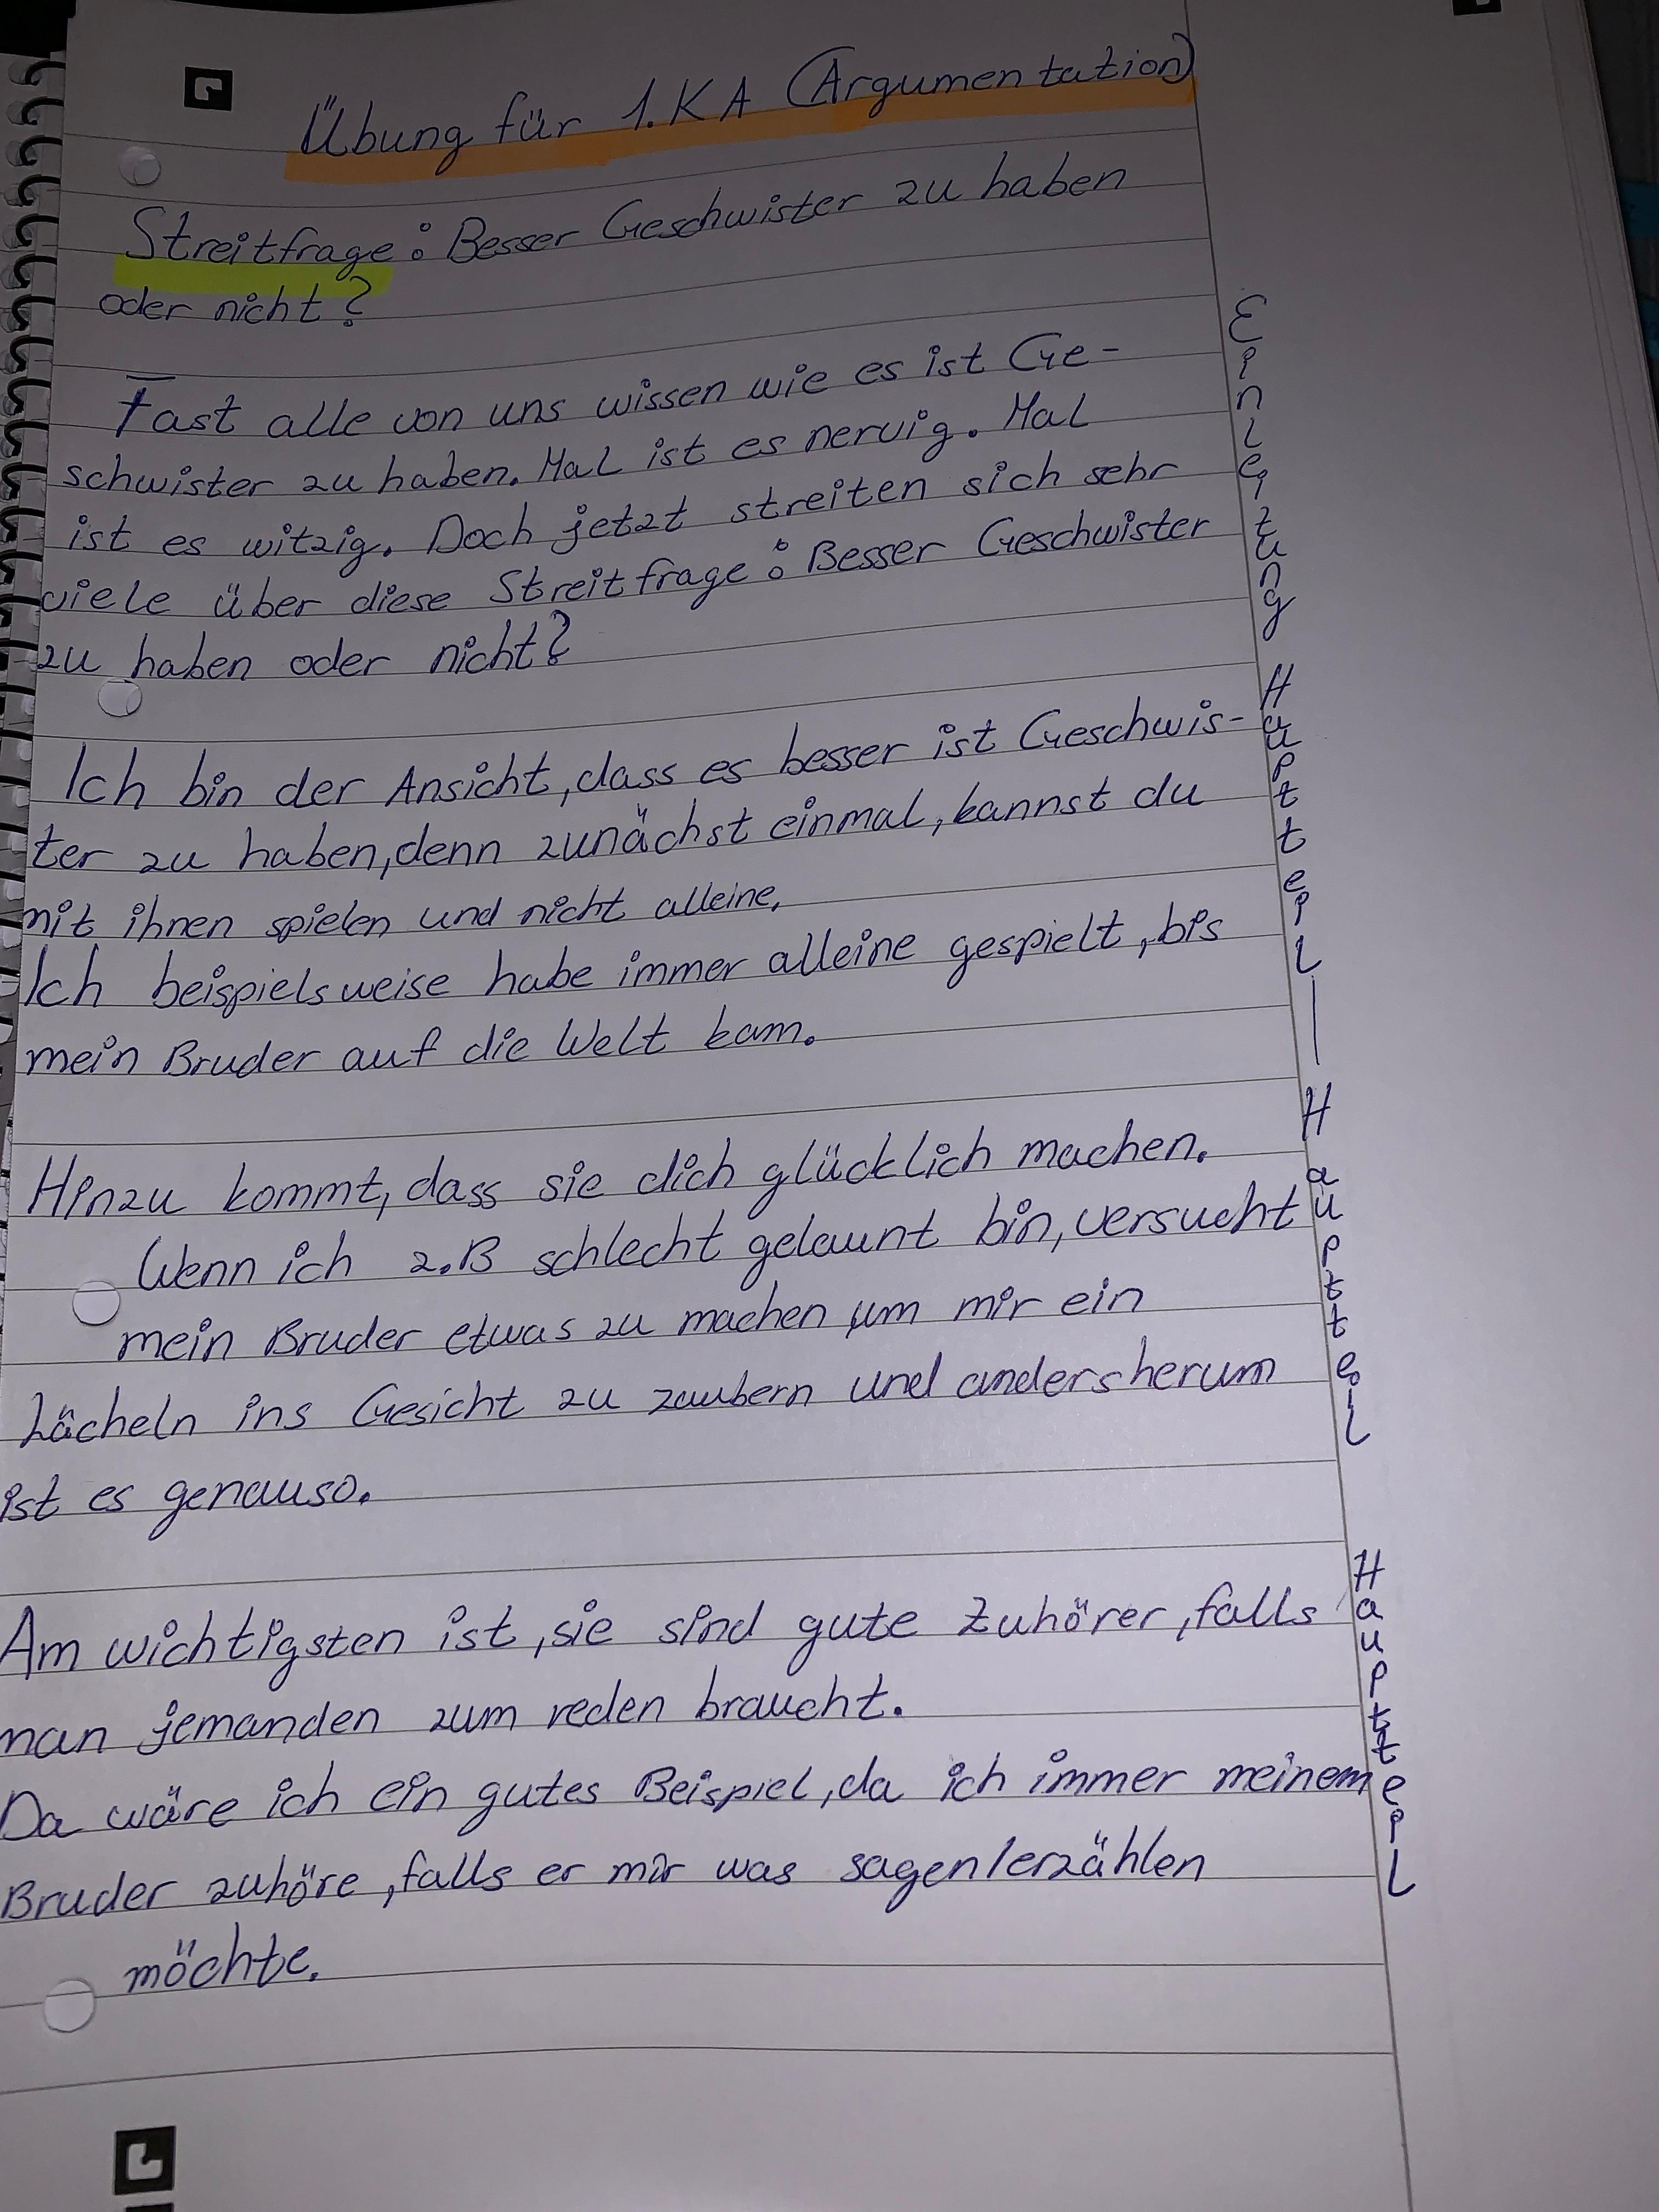 Übung für 1.KA (Argumentation)
Streitfrage: Besser Geschwister zu haben
oder nicht?
Fast alle von uns wissen wie es ist Ge-
schwister zu haben. Mal ist es nervig. Mal
ist es witzig. Doch jetzt streiten sich sehr
viele über diese Streitfrage: Besser Geschwister
zu haben oder nicht?
Einleitung
Ich bin der Ansicht, dass es besser ist Geschwis-
ter zu haben, denn zunächst einmal, kannst du
mit ihnen spielen und nicht alleine.
Ich beispielsweise habe immer alleine gespielt, bis
mein Bruder auf die Welt kam.
Hauptteil
Hinzu kommt, dass sie dich glücklich machen.
Wenn ich z.B schlecht gelaunt bin, versucht
mein Bruder etwas zu machen um mir ein
Lächeln ins Gesicht zu zaubern und andersherum
ist es genauso.
Hauptteil
Am wichtigsten ist, sie sind gute Zuhörer, falls
man jemanden zum reden braucht.
Da wäre ich ein gutes Beispiel, da ich immer meinem
Bruder zuhöre, falls er mir was sagen/erzählen
möchte.
Hauptteil